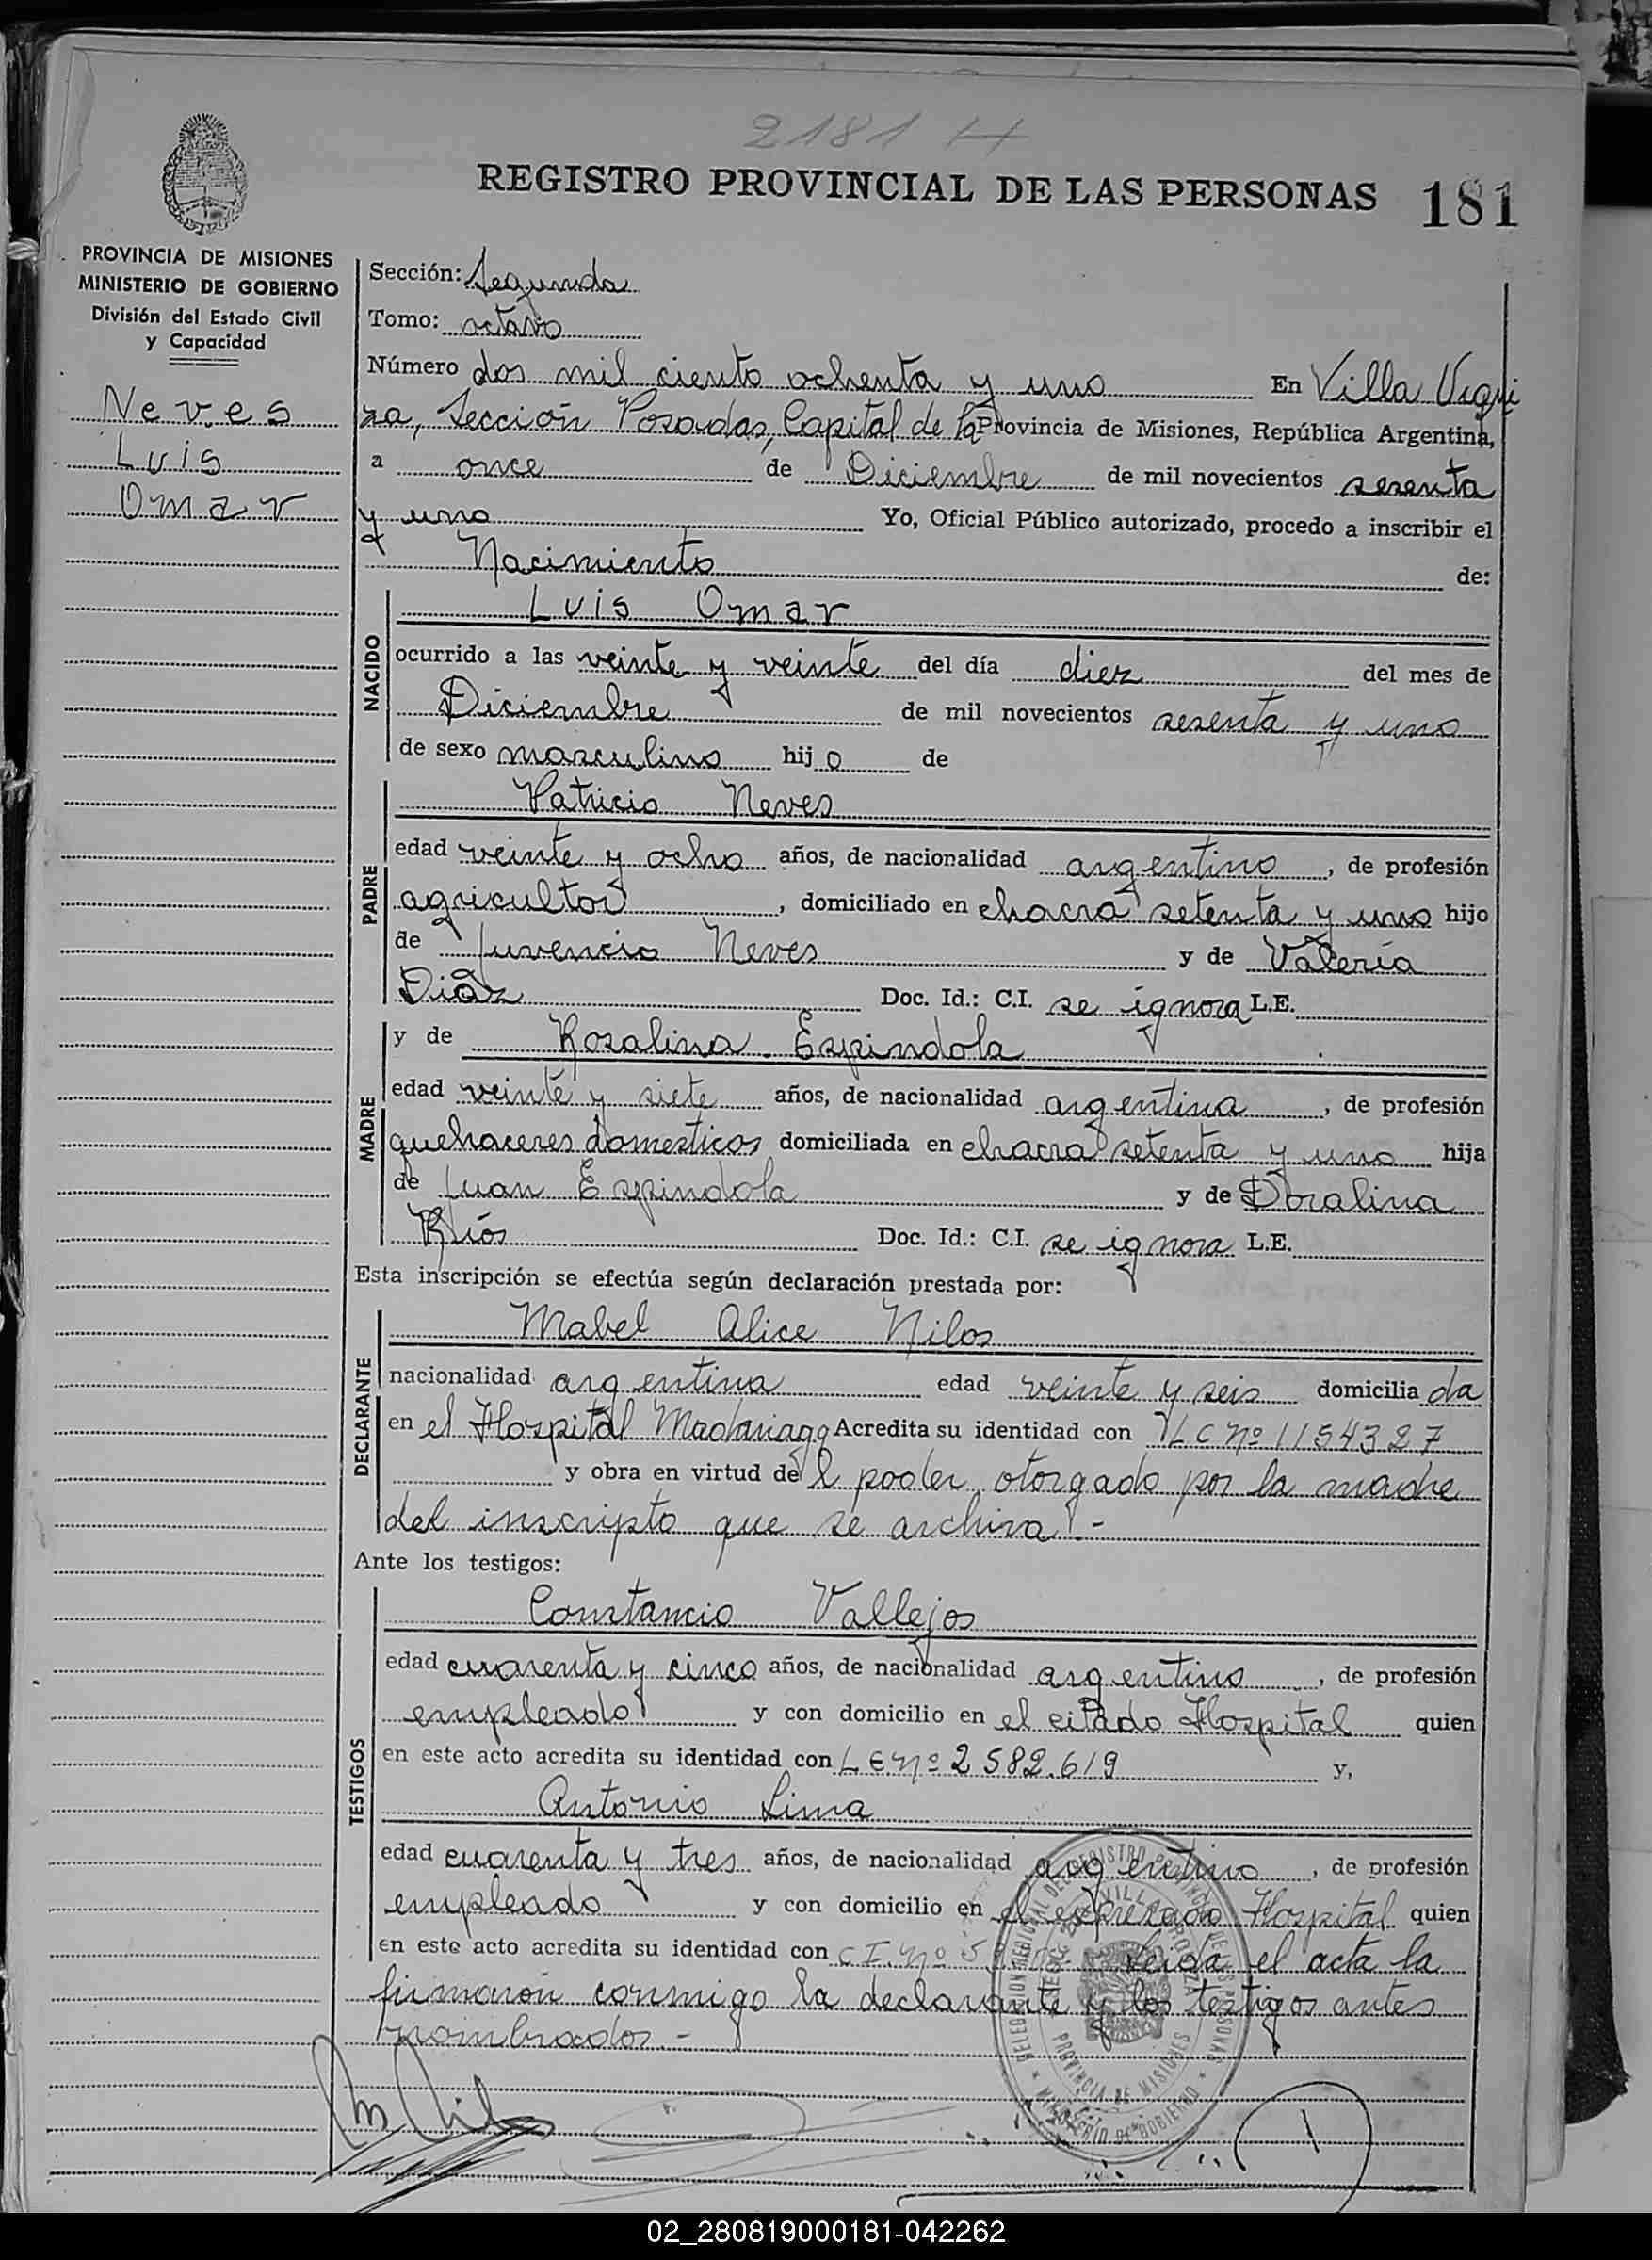 2181 H
REGISTRO PROVINCIAL DE LAS PERSONAS 181
PROVINCIA DE MISIONES
MINISTERIO DE GOBIERNO
División del Estado Civil
y Capacidad
Neves
Luis
Omar
Sección: Segunda
Tomo: octavo
Número dos mil ciento ochenta y uno En Villa Urqui
za, Sección Posadas, Capital de la Provincia de Misiones, República Argentina,
a once de Diciembre de mil novecientos sesenta
y uno Yo, Oficial Público autorizado, procedo a inscribir el
Nacimiento de:
NACIDO
Luis Omar
ocurrido a las veinte y veinte del día diez del mes de
Diciembre de mil novecientos sesenta y uno
de sexo masculino hijo de
PADRE
Patricio Neves
edad veinte y ocho años, de nacionalidad argentino, de profesión
agricultor, domiciliado en chacra setenta y uno hijo
de Juvencio Neves y de Valeria
Diáz Doc. Id.: C.I. se ignora L.E.
MADRE
y de Rosalina Espindola
edad veinte y siete años, de nacionalidad argentina, de profesión
quehaceres domesticos domiciliada en chacra setenta y uno hija
de Juan Espindola y de Doralina
Ríos Doc. Id.: C.I. se ignora L.E.
Esta inscripción se efectúa según declaración prestada por:
DECLARANTE
Mabel Alice Nilos
nacionalidad argentina edad veinte y seis domiciliada
en el Hospital Madariaga Acredita su identidad con LC Nº 1154327
y obra en virtud del poder otorgado por la madre
del inscripto que se archiva.-
Ante los testigos:
TESTIGOS
Constancio Vallejos
edad cuarenta y cinco años, de nacionalidad argentino, de profesión
empleado y con domicilio en el citado Hospital quien
en este acto acredita su identidad con LE Nº 2582.619 y,
Antonio Lima
edad cuarenta y tres años, de nacionalidad argentino, de profesión
empleado y con domicilio en el expresado Hospital quien
en este acto acredita su identidad con C.I. Nº leida el acta la
firmaron conmigo la declarante y los testigos antes
nombrados.-
PROVINCIA DE MISIONES
MINISTERIO DE GOBIERNO
02_280819000181-042262